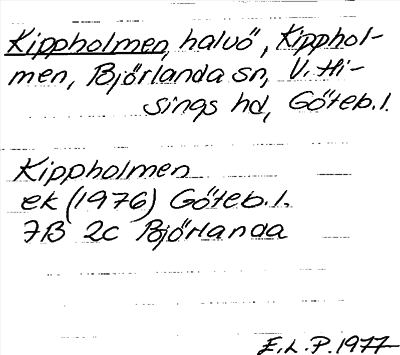 Kippholmen, halvö, Kipphol-
men, Björlanda sn, V. Hi-
sings hd, Göteb. l.
Kippholmen
ek (1976) Göteb. l.
7B 2c Björlanda
E. L. P. 1977